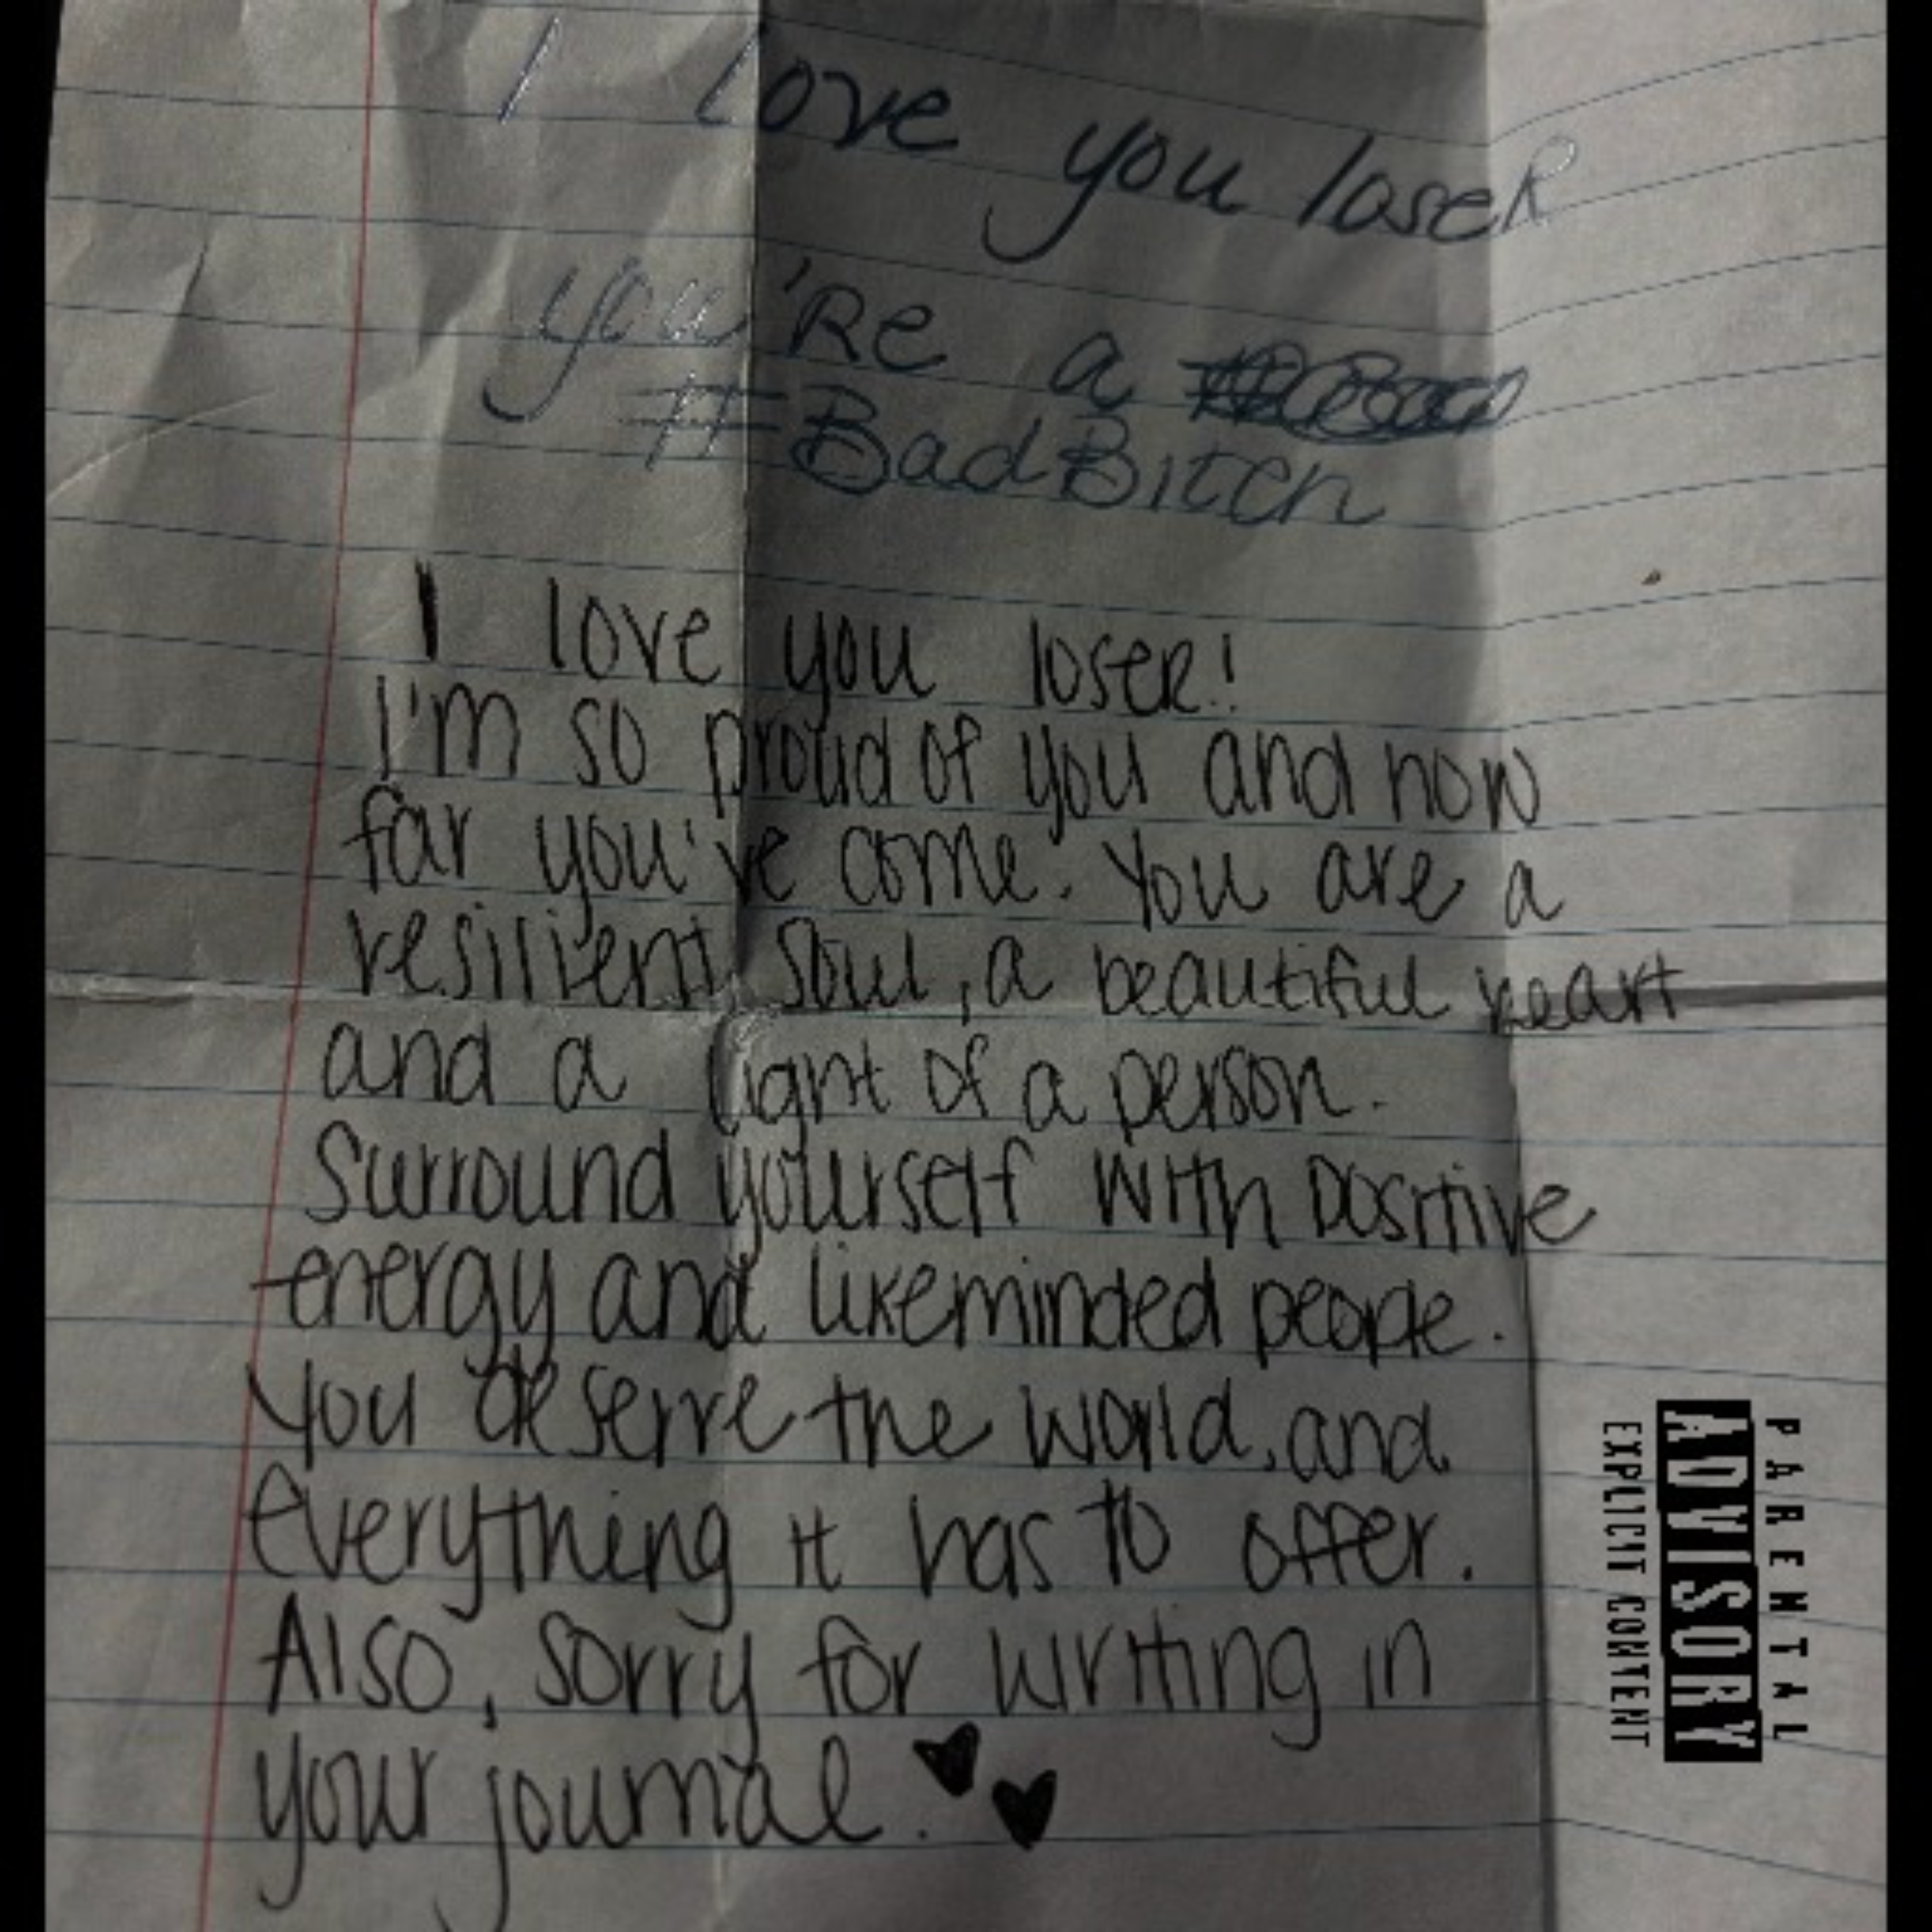 I love you loseR
you're a
#BadBitch
I love you loseR!
I'm so proud of you and how
far you've come. You are a
resilient soul, a beautiful heart
and a light of a person.
Surround yourself with positive
energy and likeminded people.
You deserve the world, and
everything it has to offer.
Also, sorry for writing in
your journal.
PARENTAL
ADVISORY
EXPLICIT CONTENT